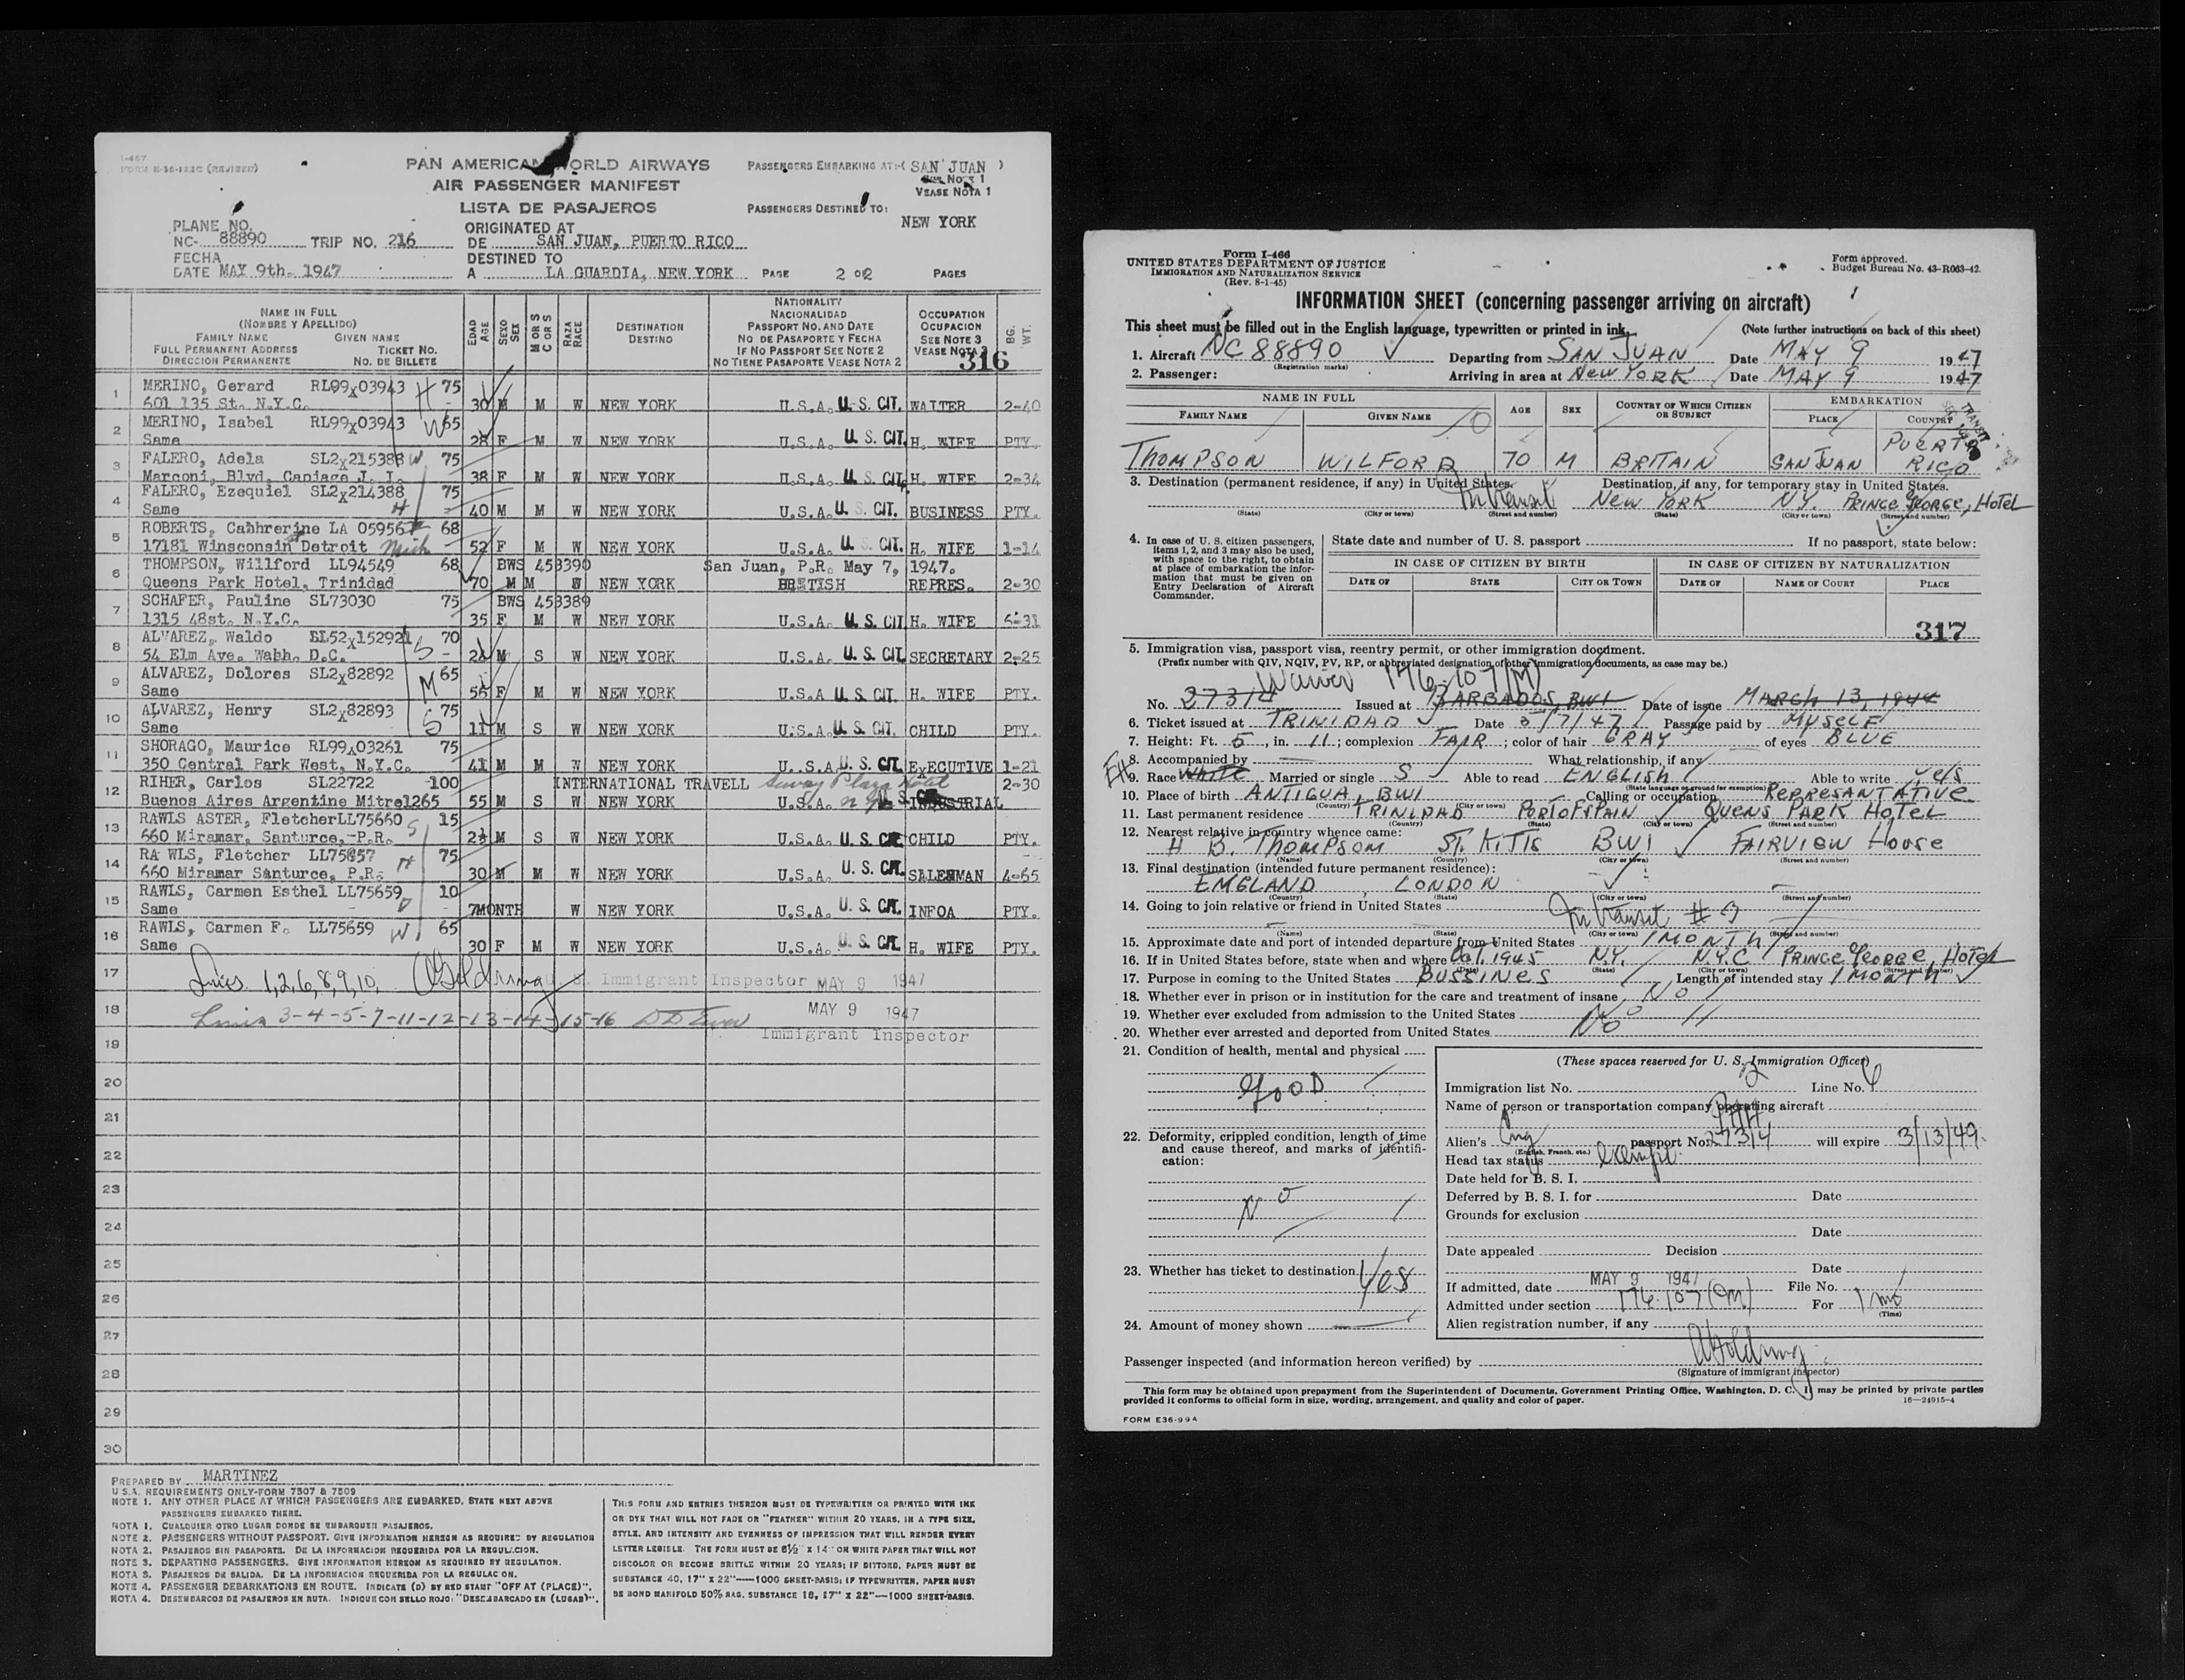 I-467
FORM E-36-122C (REVISED)
PAN AMERICAN WORLD AIRWAYS
AIR PASSENGER MANIFEST
LISTA DE PASAJEROS
PASSENGERS EMBARKING AT:( SAN JUAN )
SEE NOTE 1
VEASE NOTA 1
PASSENGERS DESTINED TO:
NEW YORK
PLANE NO.
NC- 88890 TRIP NO. 216
ORIGINATED AT
DE SAN JUAN, PUERTO RICO
FECHA
DATE MAY 9th. 1947
DESTINED TO
A LA GUARDIA, NEW YORK PAGE 2 OF 2 PAGES
NAME IN FULL
(NOMBRE Y APELLIDO)
FAMILY NAME GIVEN NAME
FULL PERMANENT ADDRESS TICKET NO.
DIRECCION PERMANENTE NO. DE BILLETE
EDAD AGE
SEXO SEX
M OR S C OR S
RAZA RACE
DESTINATION
DESTINO
NATIONALITY
NACIONALIDAD
PASSPORT NO. AND DATE
NO DE PASAPORTE Y FECHA
IF NO PASSPORT SEE NOTE 2
NO TIENE PASAPORTE VEASE NOTA 2
OCCUPATION
OCUPACION
SEE NOTE 3
VEASE NOTA 3
BG. WT.
316
1 MERINO, Gerard RL99x03943 H 75
601 135 St. N.Y.C. 30 M M W NEW YORK U.S.A. U.S. CIT. WAITER 2-40
2 MERINO, Isabel RL99x03943 W 65
Same 28 F M W NEW YORK U.S.A. U.S. CIT. H. WIFE PTY.
3 FALERO, Adela SL2x215388 W 75
Marconi, Blvd. Capiage J. I. 38 F M W NEW YORK U.S.A. U.S. CIT. H. WIFE 2-34
4 FALERO, Ezequiel SL2x214388 75
Same H 40 M M W NEW YORK U.S.A. U.S. CIT. BUSINESS PTY.
5 ROBERTS, Cahhrerine LA 05956 68
17181 Winsconsin Detroit Mich 52 F M W NEW YORK U.S.A. U.S. CIT. H. WIFE 1-14
6 THOMPSON, Willford LL94549 68 BWS 453390 San Juan, P.R. May 7, 1947.
Queens Park Hotel, Trinidad 70 M M W NEW YORK BRITISH REPRES. 2-30
7 SCHAFER, Pauline SL73030 75 BWS 453389
1315 48st. N.Y.C. 35 F M W NEW YORK U.S.A. U.S. CIT. H. WIFE 5-31
8 ALVAREZ, Waldo SL52x152921 S 70
54 Elm Ave. Wahh. D.C. 24 M S W NEW YORK U.S.A. U.S. CIT. SECRETARY 2-25
9 ALVAREZ, Dolores SL2x82892 M 65
Same 56 F M W NEW YORK U.S.A U.S. CIT. H. WIFE PTY.
10 ALVAREZ, Henry SL2x82893 S 75
Same 11 M S W NEW YORK U.S.A. U.S. CIT. CHILD PTY.
11 SHORAGO, Maurice RL99x03261 75
350 Central Park West, N.Y.C. 41 M M W NEW YORK U.S.A U.S. CIT. EXECUTIVE 1-21
12 RIHER, Carlos SL22722 -100 INTERNATIONAL TRAVELL Savoy Plaza Hotel 2-30
Buenos Aires Argentine Mitre1265 55 M S W NEW YORK U.S.A. INDUSTRIAL
13 RAWLS ASTER, FletcherLL75660 S 15
660 Miramar, Santurce,-P.R. 2½ M S W NEW YORK U.S.A. U.S. CIT. CHILD PTY.
14 RA WLS, Fletcher LL75657 H 75
660 Miramar Santurce, P.R. 30 M M W NEW YORK U.S.A. U.S. CIT. SALESMAN 4-65
15 RAWLS, Carmen Esthel LL75659 D 10
Same 7MONTH W NEW YORK U.S.A. U.S. CIT. INFOA PTY.
16 RAWLS, Carmen F. LL75659 W 65
Same 30 F M W NEW YORK U.S.A. U.S. CIT. H. WIFE PTY.
17 Lines 1,2,6,8,9,10, AGoldring U.S. Immigrant Inspector MAY 9 1947
18 Lines 3-4-5-7-11-12-13-14-15-16 MAY 9 1947
19 Immigrant Inspector
20
21
22
23
24
25
26
27
28
29
30
PREPARED BY MARTINEZ
U.S.A. REQUIREMENTS ONLY-FORM 7507 & 7509
NOTE 1. ANY OTHER PLACE AT WHICH PASSENGERS ARE EMBARKED, STATE NEXT ABOVE
PASSENGERS EMBARKED THERE.
NOTA 1. CUALQUIER OTRO LUGAR DONDE SE EMBARQUEN PASAJEROS.
NOTE 2. PASSENGERS WITHOUT PASSPORT. GIVE INFORMATION HEREON AS REQUIRED BY REGULATION
NOTA 2. PASAJEROS SIN PASAPORTE. DE LA INFORMACION REQUERIDA POR LA REGULACION.
NOTE 3. DEPARTING PASSENGERS. GIVE INFORMATION HEREON AS REQUIRED BY REGULATION.
NOTA 3. PASAJEROS DE SALIDA. DE LA INFORMACION REQUERIDA POR LA REGULACION.
NOTE 4. PASSENGER DEBARKATIONS EN ROUTE. INDICATE (D) BY RED STAMP "OFF AT (PLACE)".
NOTA 4. DESEMBARCOS DE PASAJEROS EN RUTA. INDIQUE CON SELLO ROJO: "DESEMBARCADO EN (LUGAR)".
THIS FORM AND ENTRIES THEREON MUST BE TYPEWRITTEN OR PRINTED WITH INK
OR DYE THAT WILL NOT FADE OR "FEATHER" WITHIN 20 YEARS, IN A TYPE SIZE,
STYLE, AND INTENSITY AND EVENNESS OF IMPRESSION THAT WILL RENDER EVERY
LETTER LEGIBLE. THE FORM MUST BE 8½" X 14" ON WHITE PAPER THAT WILL NOT
DISCOLOR OR BECOME BRITTLE WITHIN 20 YEARS; IF DITTOED, PAPER MUST BE
SUBSTANCE 40, 17" X 22"—1000 SHEET-BASIS; IF TYPEWRITTEN, PAPER MUST
BE BOND MANIFOLD 50% RAG, SUBSTANCE 18, 17" X 22"—1000 SHEET-BASIS.
Form I-466
UNITED STATES DEPARTMENT OF JUSTICE
IMMIGRATION AND NATURALIZATION SERVICE
(Rev. 8-1-45)
Form approved.
Budget Bureau No. 43-R063-42.
INFORMATION SHEET (concerning passenger arriving on aircraft)
This sheet must be filled out in the English language, typewritten or printed in ink. (Note further instructions on back of this sheet)
1. Aircraft NC 88890 Departing from SAN JUAN Date MAY 9 1947
(Registration marks)
2. Passenger: Arriving in area at NEW YORK Date MAY 9 1947
NAME IN FULL
FAMILY NAME GIVEN NAME AGE SEX COUNTRY OF WHICH CITIZEN OR SUBJECT EMBARKATION
PLACE COUNTRY
THOMPSON WILFORD 70 M BRITAIN SAN JUAN PUERTO RICO
3. Destination (permanent residence, if any) in United States. Destination, if any, for temporary stay in United States.
In transit NEW YORK N.Y. PRINCE GEORGE, HOTEL
(State) (City or town) (Street and number) (State) (City or town) (Street and number)
4. In case of U. S. citizen passengers, items 1, 2, and 3 may also be used, with space to the right, to obtain at place of embarkation the information that must be given on Entry Declaration of Aircraft Commander.
State date and number of U. S. passport If no passport, state below:
IN CASE OF CITIZEN BY BIRTH IN CASE OF CITIZEN BY NATURALIZATION
DATE OF STATE CITY OR TOWN DATE OF NAME OF COURT PLACE
317
5. Immigration visa, passport visa, reentry permit, or other immigration document.
(Prefix number with QIV, NQIV, PV, RP, or abbreviated designation of other immigration documents, as case may be.)
Waiver 176.107(M)
No. 27314 Issued at BARBADOS, BWI Date of issue MARCH 13, 1944
6. Ticket issued at TRINIDAD Date 5/7/47 Passage paid by MYSELF
7. Height: Ft. 5, in. 11; complexion FAIR; color of hair GRAY of eyes BLUE
8. Accompanied by What relationship, if any
9. Race White Married or single S Able to read ENGLISH Able to write yes
(State language or ground for exemption)
10. Place of birth ANTIGUA, BWI Calling or occupation REPRESANTATIVE
(Country) (City or town)
11. Last permanent residence TRINIDAD PORTOFSPAIN QUENS PARK HOTEL
(Country) (State) (City or town) (Street and number)
12. Nearest relative in country whence came:
H B. THOMPSON ST. KITTS BWI FAIRVIEW HOUSE
(Name) (Country) (City or town) (Street and number)
13. Final destination (intended future permanent residence):
ENGLAND, LONDON
(Country) (State) (City or town) (Street and number)
14. Going to join relative or friend in United States In transit #3
(Name) (State) (City or town) (Street and number)
15. Approximate date and port of intended departure from United States 1 MONTH
16. If in United States before, state when and where OCT. 1945 N.Y. N.Y.C PRINCE GEORGE, HOTEL
(Date) (State) (City or town) (Street and number)
17. Purpose in coming to the United States BUSSINES Length of intended stay 1 MONTH
18. Whether ever in prison or in institution for the care and treatment of insane No
19. Whether ever excluded from admission to the United States No
20. Whether ever arrested and deported from United States
21. Condition of health, mental and physical
GOOD
22. Deformity, crippled condition, length of time and cause thereof, and marks of identification:
NO
23. Whether has ticket to destination Yes
24. Amount of money shown
(These spaces reserved for U. S. Immigration Officer)
Immigration list No. 2 Line No. 6
Name of person or transportation company operating aircraft
PAA
Alien's Eng passport No. 27314 will expire 3/13/49.
(English, French, etc.)
Head tax status exempt
Date held for B. S. I.
Deferred by B. S. I. for Date
Grounds for exclusion
Date
Date appealed Decision
Date
If admitted, date MAY 9 1947 File No.
Admitted under section 176.107(M) For 1 mo
(Time)
Alien registration number, if any
Passenger inspected (and information hereon verified) by AGoldring
(Signature of immigrant inspector)
This form may be obtained upon prepayment from the Superintendent of Documents, Government Printing Office, Washington, D. C. It may be printed by private parties
provided it conforms to official form in size, wording, arrangement, and quality and color of paper. 16—24915-4
FORM E36-99A